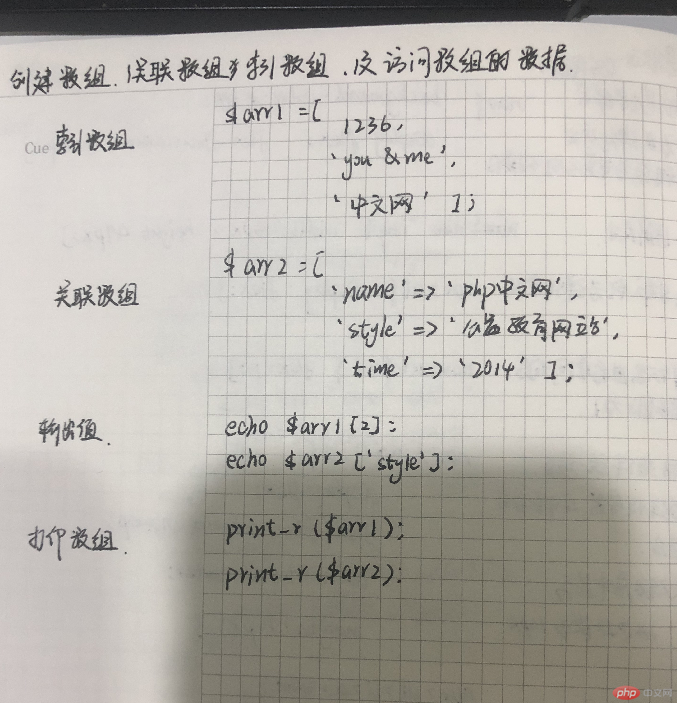 创建数组.关联数组与索引数组.及访问数组的数据.
Cue 索引数组
$arr1 = [
1236,
'you & me',
'中文网' ];
关联数组
$arr2 = [
'name' => 'php中文网',
'style' => '公益教育网站',
'time' => '2014' ];
输出值.
echo $arr1[2];
echo $arr2['style'];
打印数组.
print_r ($arr1);
print_r ($arr2);
php 中文网